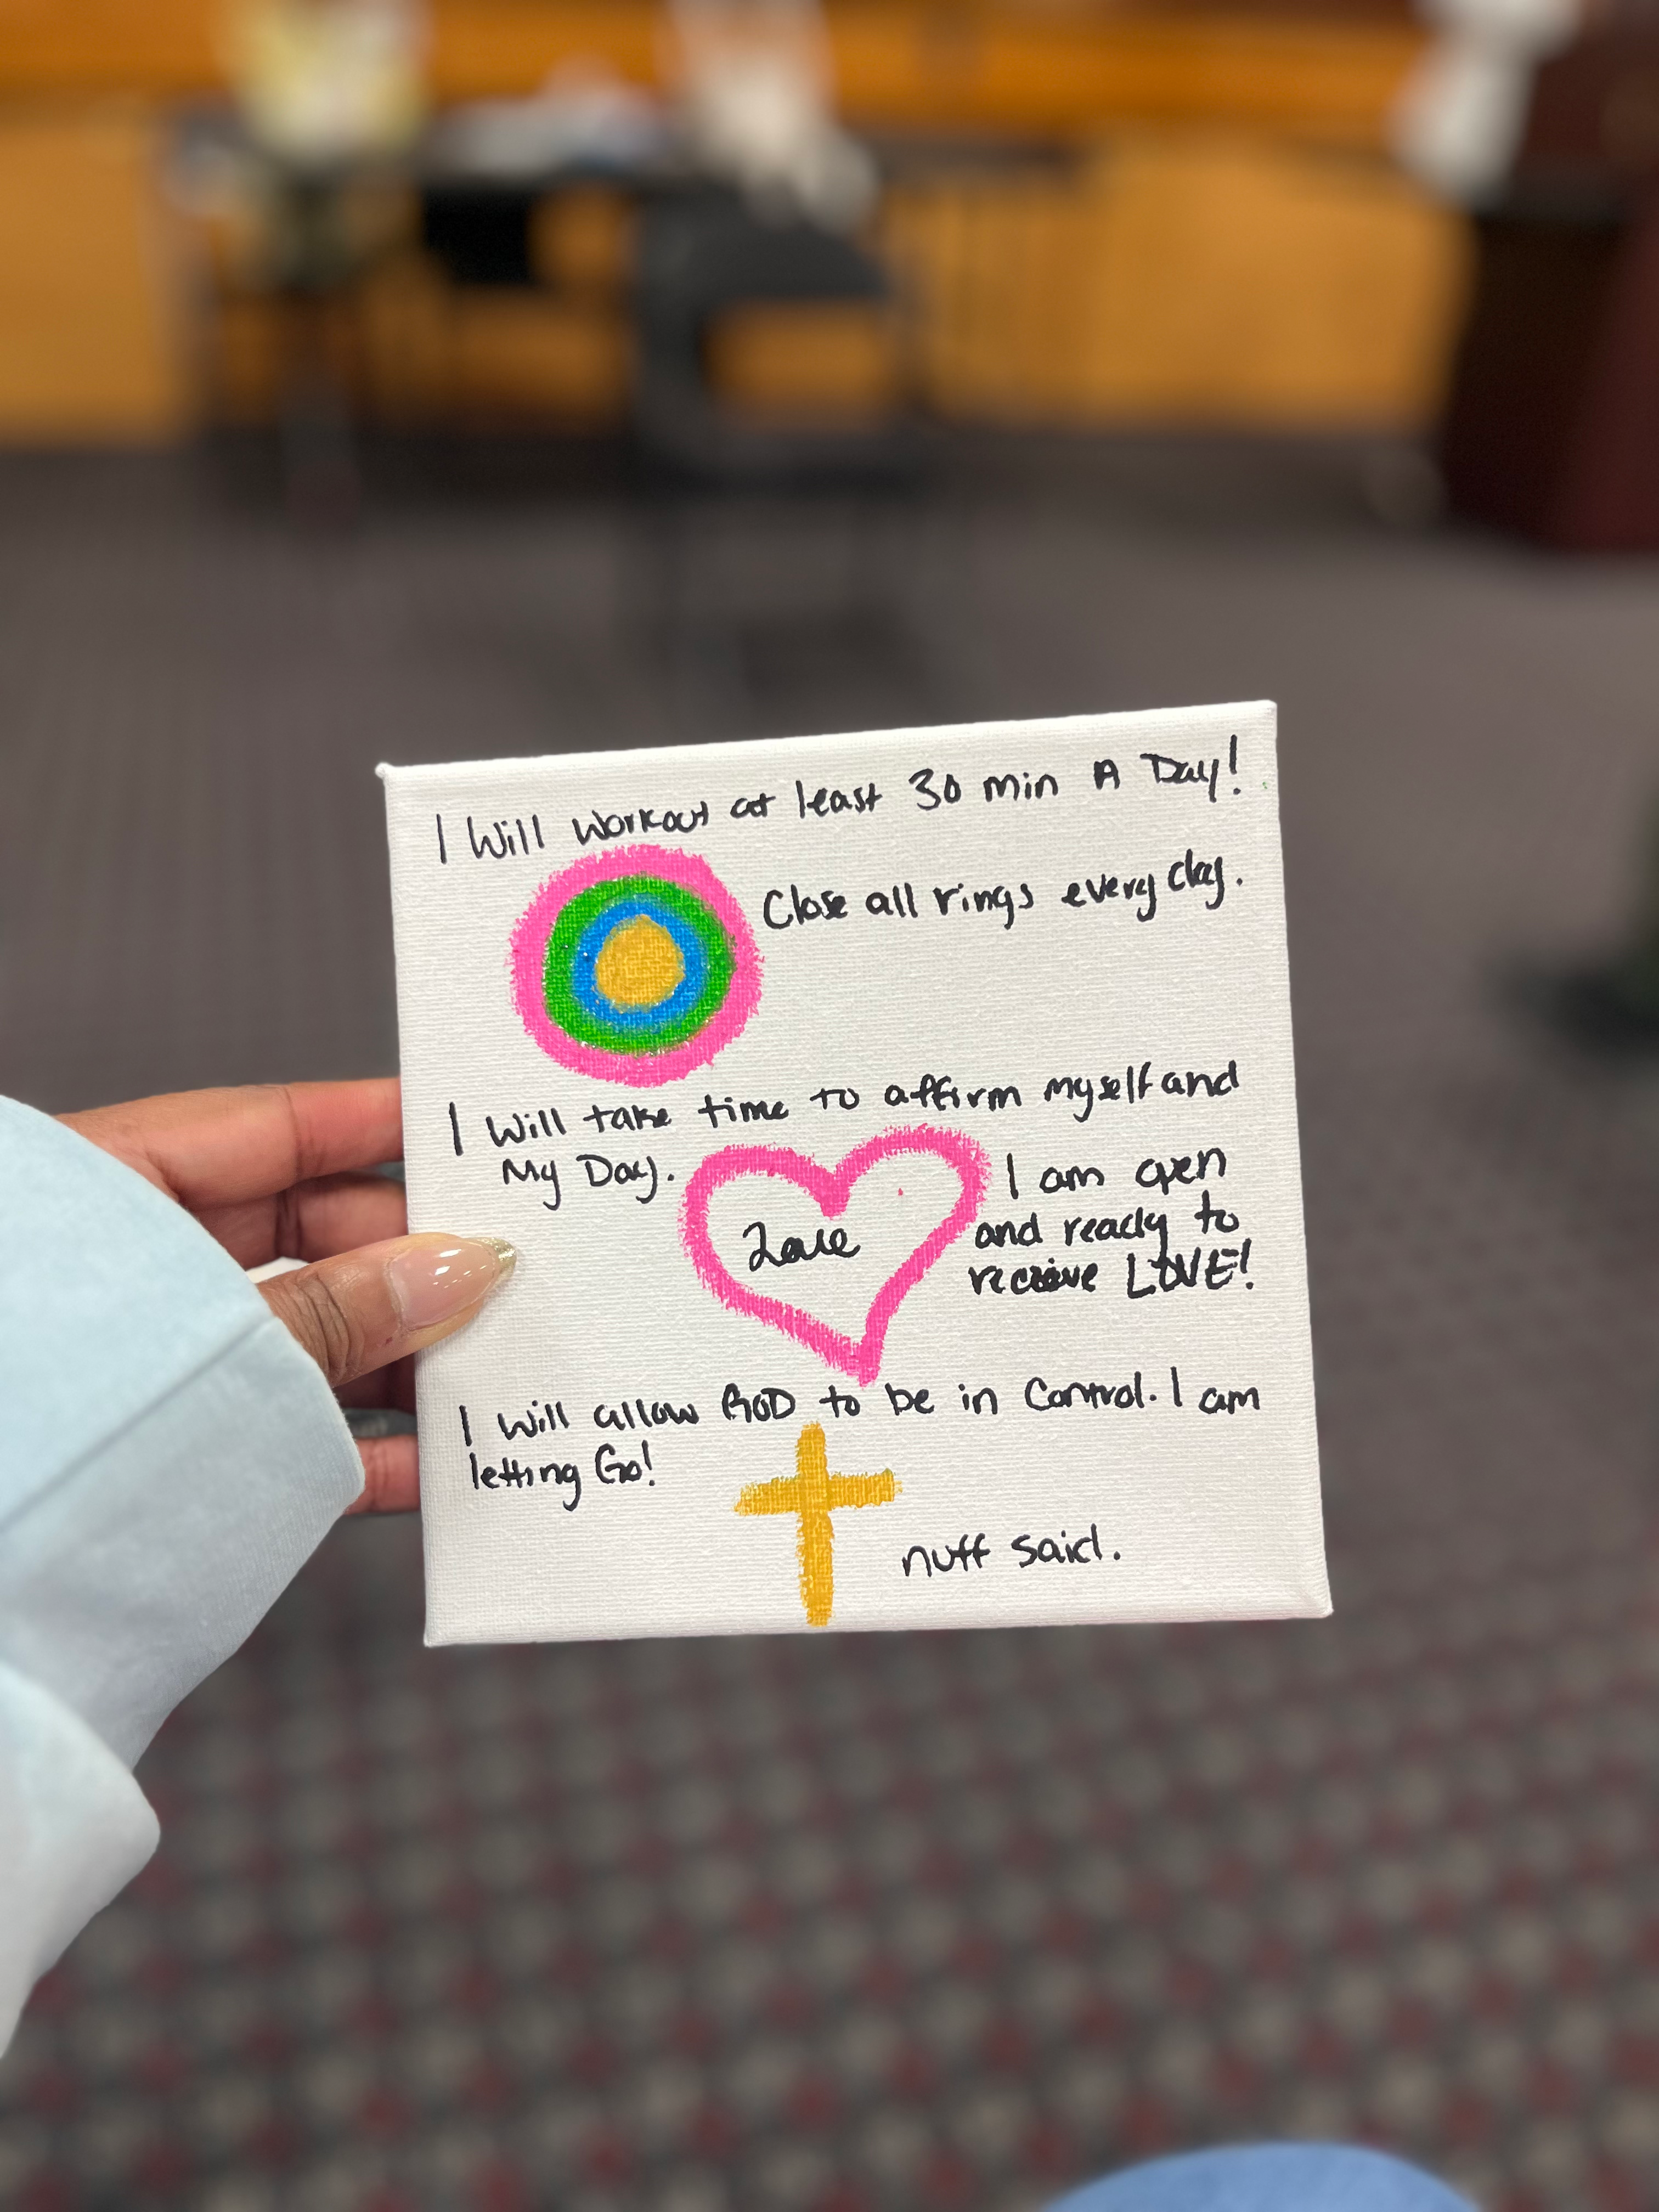 I Will Workout at least 30 min A Day!
Close all rings every day.
I Will take time to affirm myself and
My Day.
Love
I am open
and ready to
receive LOVE!
I Will allow GOD to be in Control. I am
letting Go!
nuff said.